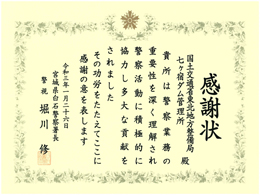 感謝状
国土交通省東北地方整備局
七ヶ宿ダム管理所 殿
貴所は警察業務の
重要性を深く理解され
警察活動に積極的に
協力し多大な貢献を
されました
その功労をたたえてここに
感謝の意を表します
令和三年一月二十六日
宮城県白石警察署長
警視 堀川 修